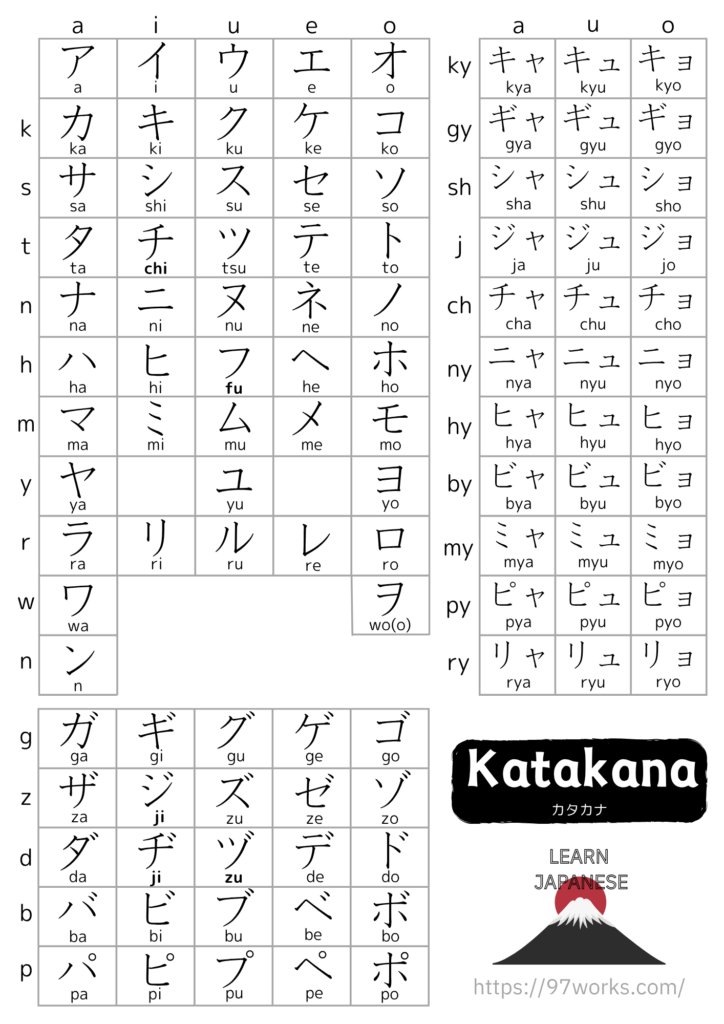 a i u e o
ア イ ウ エ オ
a i u e o
k カ キ ク ケ コ
ka ki ku ke ko
s サ シ ス セ ソ
sa shi su se so
t タ チ ツ テ ト
ta chi tsu te to
n ナ ニ ヌ ネ ノ
na ni nu ne no
h ハ ヒ フ ヘ ホ
ha hi fu he ho
m マ ミ ム メ モ
ma mi mu me mo
y ヤ ユ ヨ
ya yu yo
r ラ リ ル レ ロ
ra ri ru re ro
w ワ ヲ
wa wo(o)
n ン
n
g ガ ギ グ ゲ ゴ
ga gi gu ge go
z ザ ジ ズ ゼ ゾ
za ji zu ze zo
d ダ ヂ ヅ デ ド
da ji zu de do
b バ ビ ブ ベ ボ
ba bi bu be bo
p パ ピ プ ペ ポ
pa pi pu pe po
a u o
ky キャ キュ キョ
kya kyu kyo
gy ギャ ギュ ギョ
gya gyu gyo
sh シャ シュ ショ
sha shu sho
j ジャ ジュ ジョ
ja ju jo
ch チャ チュ チョ
cha chu cho
ny ニャ ニュ ニョ
nya nyu nyo
hy ヒャ ヒュ ヒョ
hya hyu hyo
by ビャ ビュ ビョ
bya byu byo
my ミャ ミュ ミョ
mya myu myo
py ピャ ピュ ピョ
pya pyu pyo
ry リャ リュ リョ
rya ryu ryo
Katakana
カタカナ
LEARN
JAPANESE
https://97works.com/